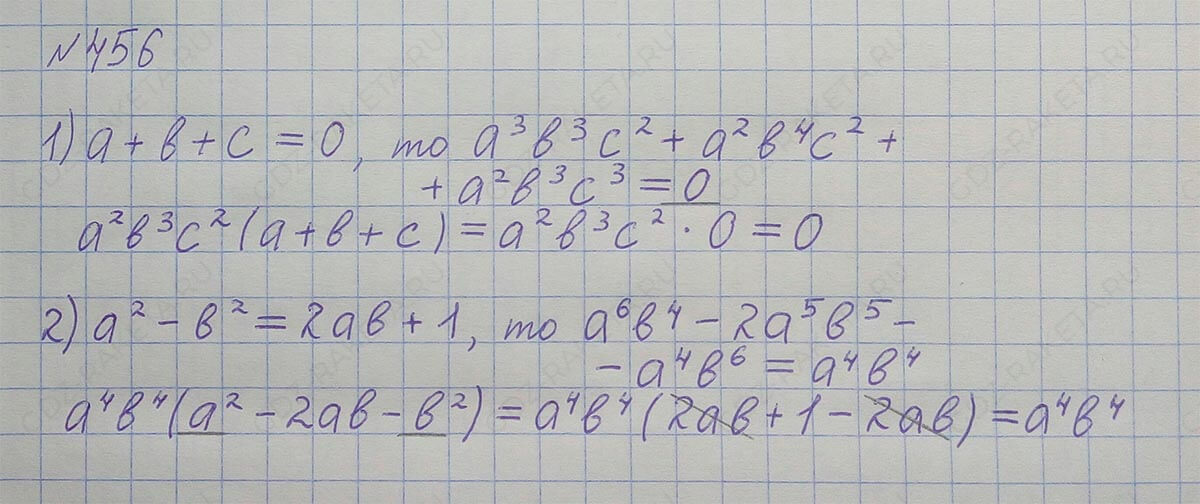 №456
1) a + b + c = 0, то a³b³c² + a²b⁴c² +
+ a²b³c³ = 0
a²b³c²(a + b + c) = a²b³c² · 0 = 0
2) a² - b² = 2ab + 1, то a⁶b⁴ - 2a⁵b⁵ -
- a⁴b⁶ = a⁴b⁴
a⁴b⁴(a² - 2ab - b²) = a⁴b⁴(2ab + 1 - 2ab) = a⁴b⁴